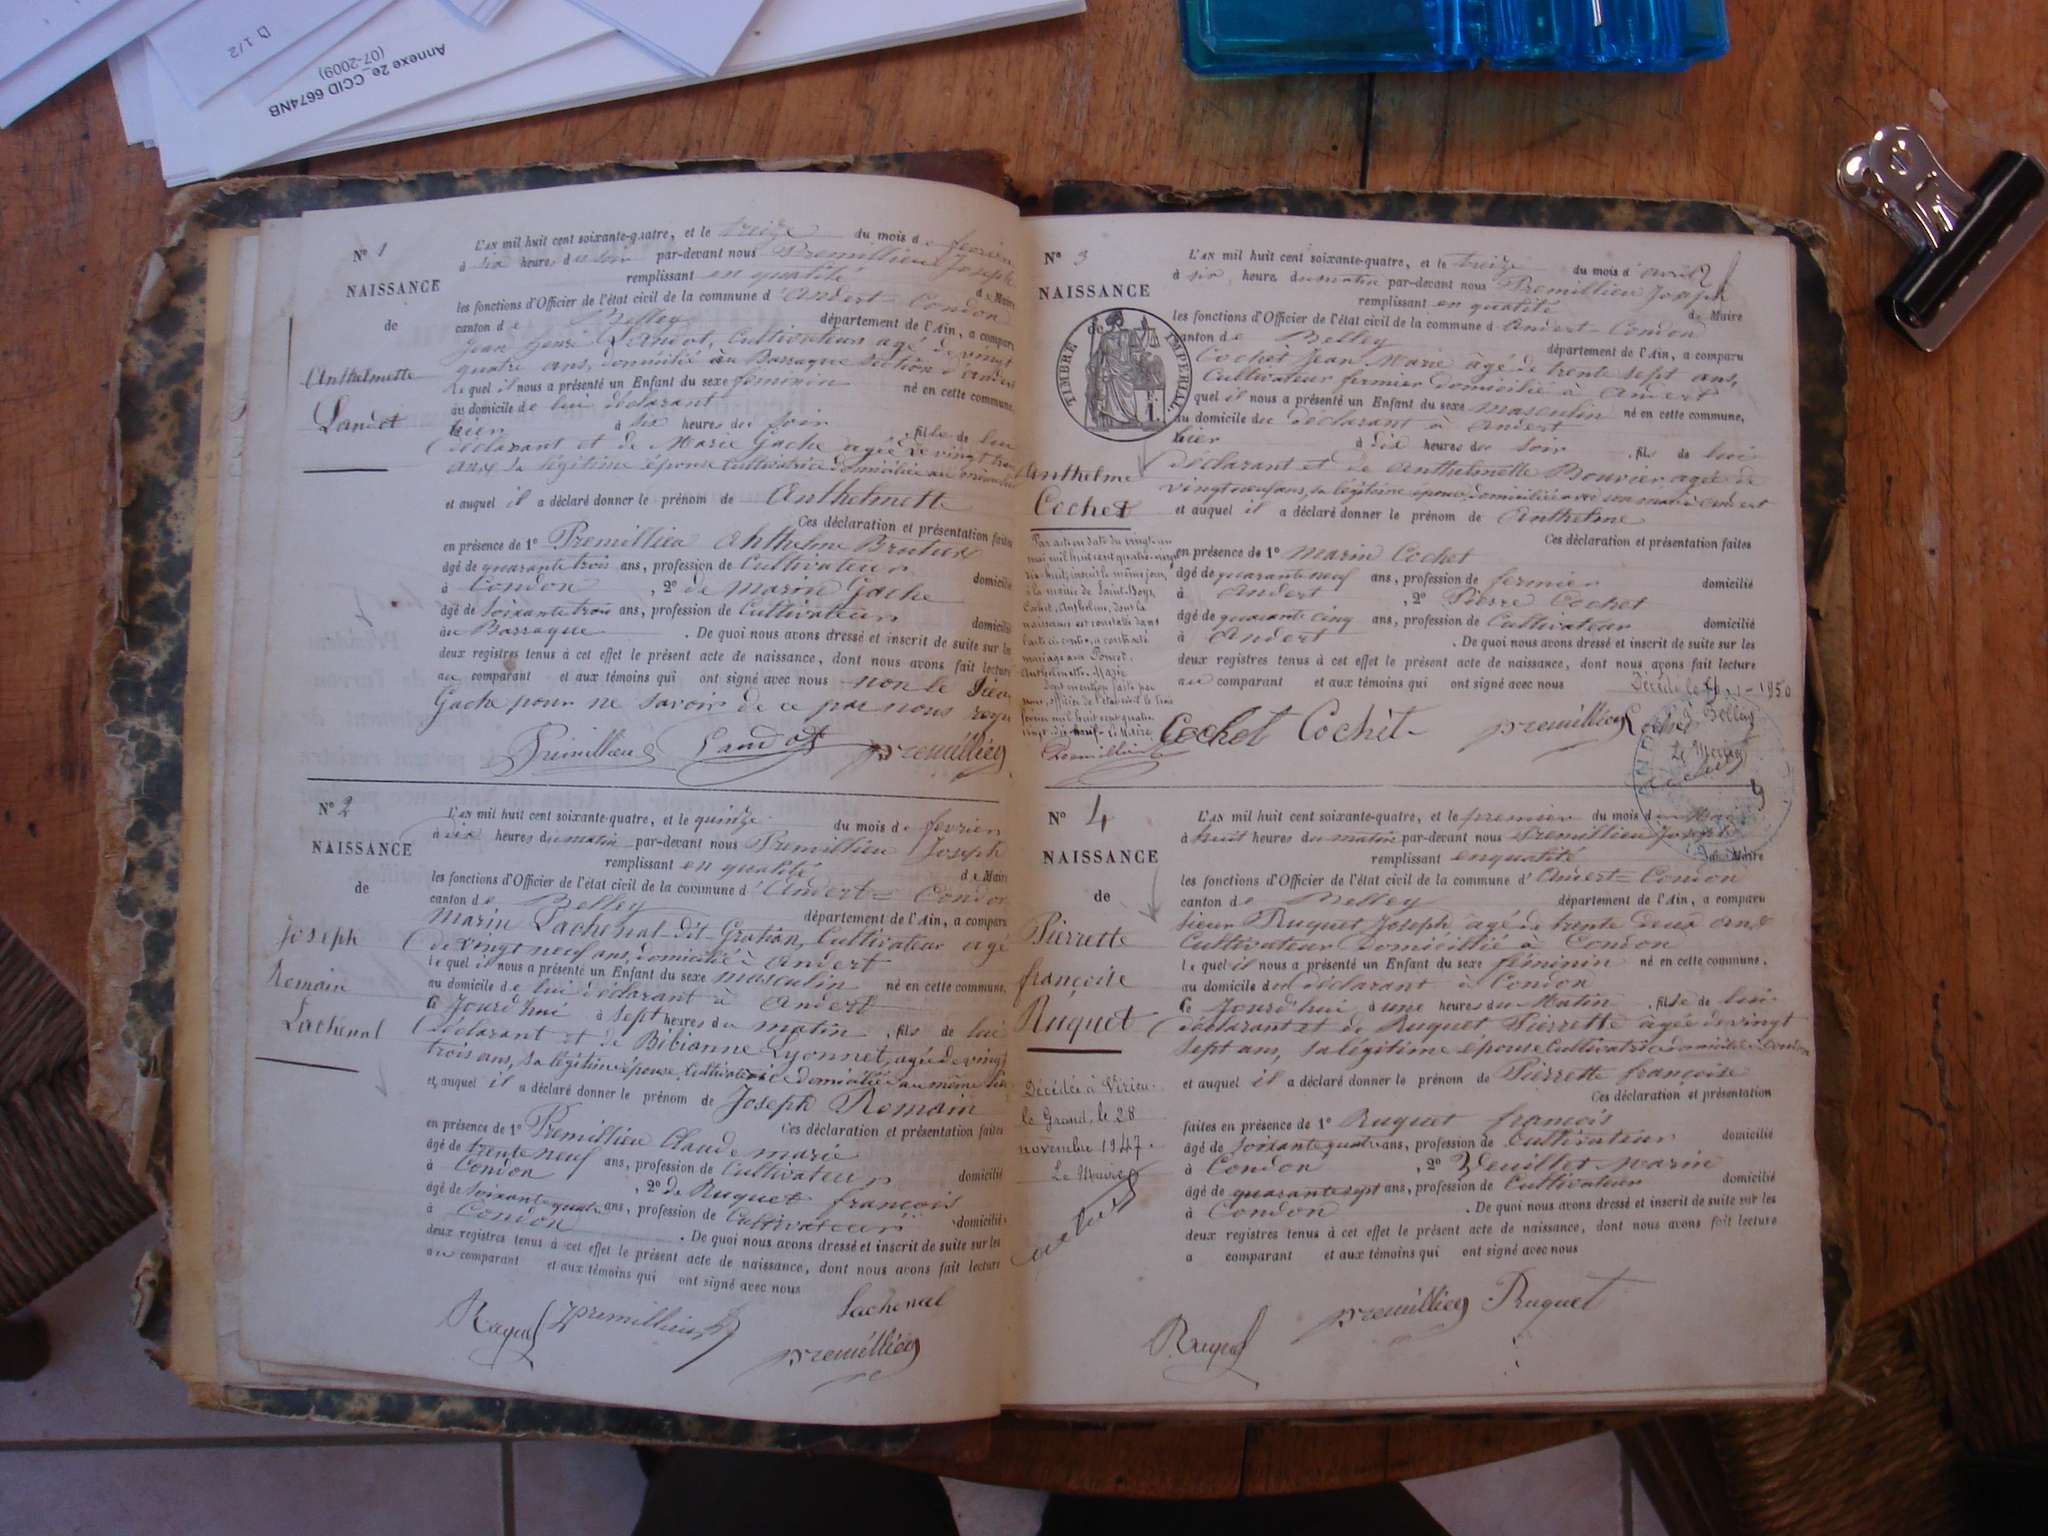 D 1/2
Annexe 2e_CCID 6674NB
(07-2009)
N° 1
NAISSANCE
de
Anthelmette
Landot
L'AN mil huit cent soixante-quatre, et le treize du mois de fevrier
à six heures du soir par-devant nous Premillieu Joseph
remplissant en qualité de Maire
les fonctions d'Officier de l'état civil de la commune d'Andert=Condon
canton de Belley département de l'Ain, a comparu
Jean henri Landot, Cultivateur agé de vingt
quatre ans, domicilié au Barraque section d'Andert
Le quel il nous a présenté un Enfant du sexe féminin né en cette commune,
au domicile de lui déclarant
hier à six heures du soir , fille de lui
déclarant et de Marie Gache agée de vingt trois
ans sa légitime épouse Cultivatrice domiciliée au
et auquel il a déclaré donner le prénom de Anthelmette
Ces déclaration et présentation faites
en présence de 1° Premillieu Anthelme
âgé de quarante trois ans, profession de Cultivateur domicilié
à Condon , 2° de Marin Gache
âgé de soixante trois ans, profession de Cultivateur domicilié
au Barraque . De quoi nous avons dressé et inscrit de suite sur les
deux registres tenus à cet effet le présent acte de naissance, dont nous avons fait lecture
au comparant et aux témoins qui ont signé avec nous non le sieur
Gache pour ne savoir de ce par nous requis
Premillieu Landot Premillieu
N° 2
NAISSANCE
de
Joseph
Romain
Lachenal
L'AN mil huit cent soixante-quatre, et le quinze du mois de fevrier
à dix heures du matin par-devant nous Premillieu Joseph
remplissant en qualité de Maire
les fonctions d'Officier de l'état civil de la commune d'Andert=Condon
canton de Belley département de l'Ain, a comparu
Marin Lachenal-dit-Gration, Cultivateur agé
de vingt neuf ans, domicilié à Andert
Le quel il nous a présenté un Enfant du sexe masculin né en cette commune,
au domicile de lui déclarant à Andert
Ce Jourd'hui à sept heures du matin , fils de lui
déclarant et de Bibianne Lyonnet, agée de vingt
trois ans, sa légitime épouse, Cultivatrice domiciliée au même lieu
et auquel il a déclaré donner le prénom de Joseph Romain
Ces déclaration et présentation faites
en présence de 1° Premillieu Claude marie
âgé de trente neuf ans, profession de Cultivateur domicilié
à Condon , 2° de Ruguet françois
âgé de soixante quatre ans, profession de Cultivateur domicilié
à Condon . De quoi nous avons dressé et inscrit de suite sur les
deux registres tenus à cet effet le présent acte de naissance, dont nous avons fait lecture
au comparant et aux témoins qui ont signé avec nous
Ruguet Premillieu Lachenal
Premillieu
N° 3
NAISSANCE
de
TIMBRE IMPÉRIAL
Anthelme
Cochet
Par acte en date du vingt-un
mai mil huit cent quatre-vingt
dix-huit, inscrit le même jour,
à la mairie de Saint-Bois,
Cochet, Anthelme, dont la
naissance est constatée dans
l'acte ci-contre, a contracté
mariage avec Poncet,
Anthelmette Marie
Dont mention faite par
nous, officier de l'état civil le trois
février mil huit cent quatre
vingt-dix-neuf. Le Maire,
Premillieu
L'AN mil huit cent soixante-quatre, et le treize du mois d'avril
à six heures du matin par-devant nous Premillieu Joseph
remplissant en qualité de Maire
les fonctions d'Officier de l'état civil de la commune d'Andert=Condon
canton de Belley département de l'Ain, a comparu
Cochet Jean Marie âgé de trente sept ans,
Cultivateur fermier domicilié à Andert
Le quel il nous a présenté un Enfant du sexe masculin né en cette commune,
au domicile du déclarant à Andert
hier à dix heures du soir , fils de lui
déclarant et de Anthelmette Bouvier agée de
vingt neuf ans, sa légitime épouse domiciliée avec son mari à Andert
et auquel il a déclaré donner le prénom de Anthelme
Ces déclaration et présentation faites
en présence de 1° Marin Cochet
âgé de quarante neuf ans, profession de fermier domicilié
à Andert , 2° Pierre Cochet
âgé de quarante cinq ans, profession de Cultivateur domicilié
à Andert . De quoi nous avons dressé et inscrit de suite sur les
deux registres tenus à cet effet le présent acte de naissance, dont nous avons fait lecture
au comparant et aux témoins qui ont signé avec nous
Décédé le 1950
à Belley
Le Maire
Cochet Cochet Premillieu Cochet
N° 4
NAISSANCE
de
Pierrette
françoise
Ruguet
Décédée à Virieu-
le Grand, le 28
novembre 1947.
Le Maire
L'AN mil huit cent soixante-quatre, et le premier du mois de Mai
à huit heures du matin par-devant nous Premillieu Joseph
remplissant en qualité de Maire
les fonctions d'Officier de l'état civil de la commune d'Andert=Condon
canton de Belley département de l'Ain, a comparu
sieur Ruguet Joseph agé de trente deux ans
Cultivateur Domicilié à Condon
Le quel il nous a présenté un Enfant du sexe féminin né en cette commune,
au domicile du déclarant à Condon
Ce Jourd'hui à une heures du Matin , fille de lui
déclarant et de Ruguet Pierrette agée de vingt
sept ans, sa légitime épouse Cultivatrice domiciliée à Condon
et auquel il a déclaré donner le prénom de Pierrette françoise
Ces déclaration et présentation
faites en présence de 1° Ruguet françois
âgé de soixante quatre ans, profession de Cultivateur domicilié
à Condon , 2° Veuillet Marin
âgé de quarante sept ans, profession de Cultivateur domicilié
à Condon . De quoi nous avons dressé et inscrit de suite sur les
deux registres tenus à cet effet le présent acte de naissance, dont nous avons fait lecture
a comparant et aux témoins qui ont signé avec nous
Ruguet Premillieu Ruguet